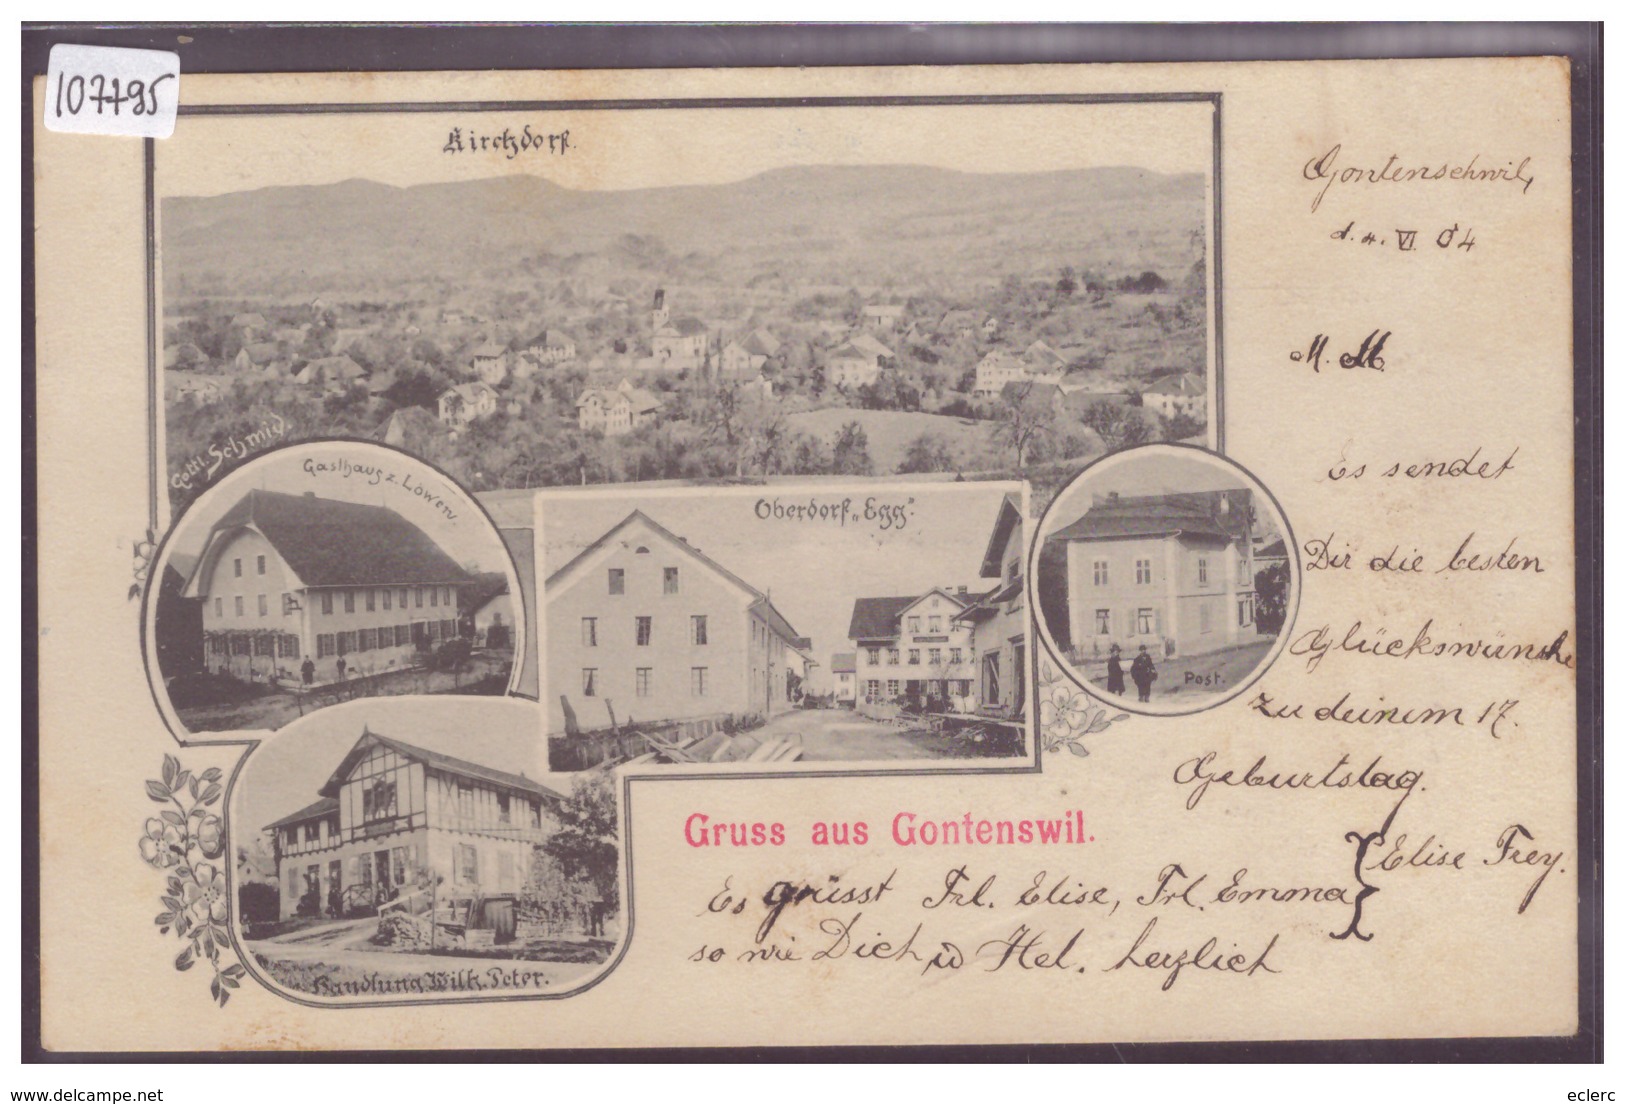 107795
Kirchdorf.
Gottl. Schmid.
Gasthaus z. Löwen.
Oberdorf „Egg“.
Post.
Handlung Wilh. Peter.
Gruss aus Gontenswil.
Gontenschwil,
d. 4. VI. 04
M. M.
Es sendet
Dir die besten
Glückswünsche
zu deinem 17.
Geburtstag.
Elise Frey.
Es grüsst Frl. Elise, Frl. Emma
so wie Dich, u Hel. herzlich
www.delcampe.net
eclerc